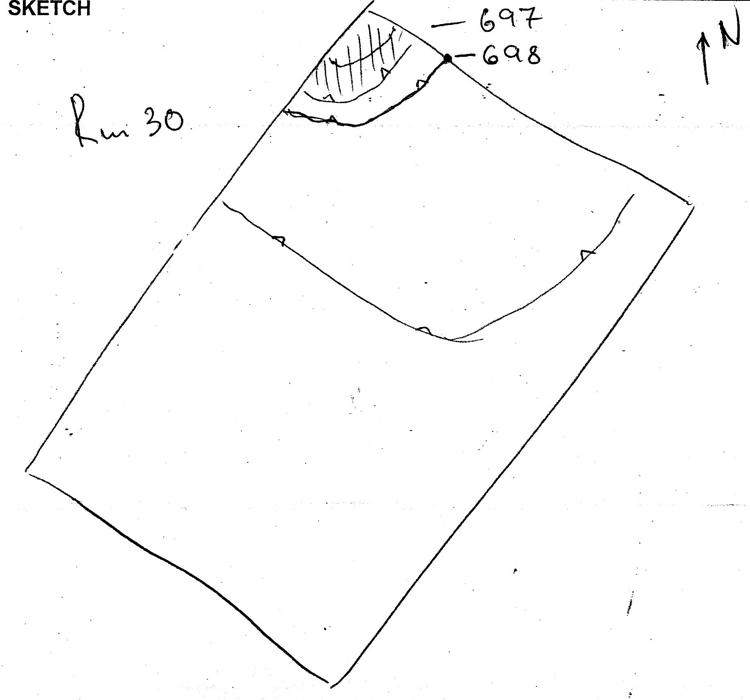 SKETCH
— 697
— 698
N
Rm 30